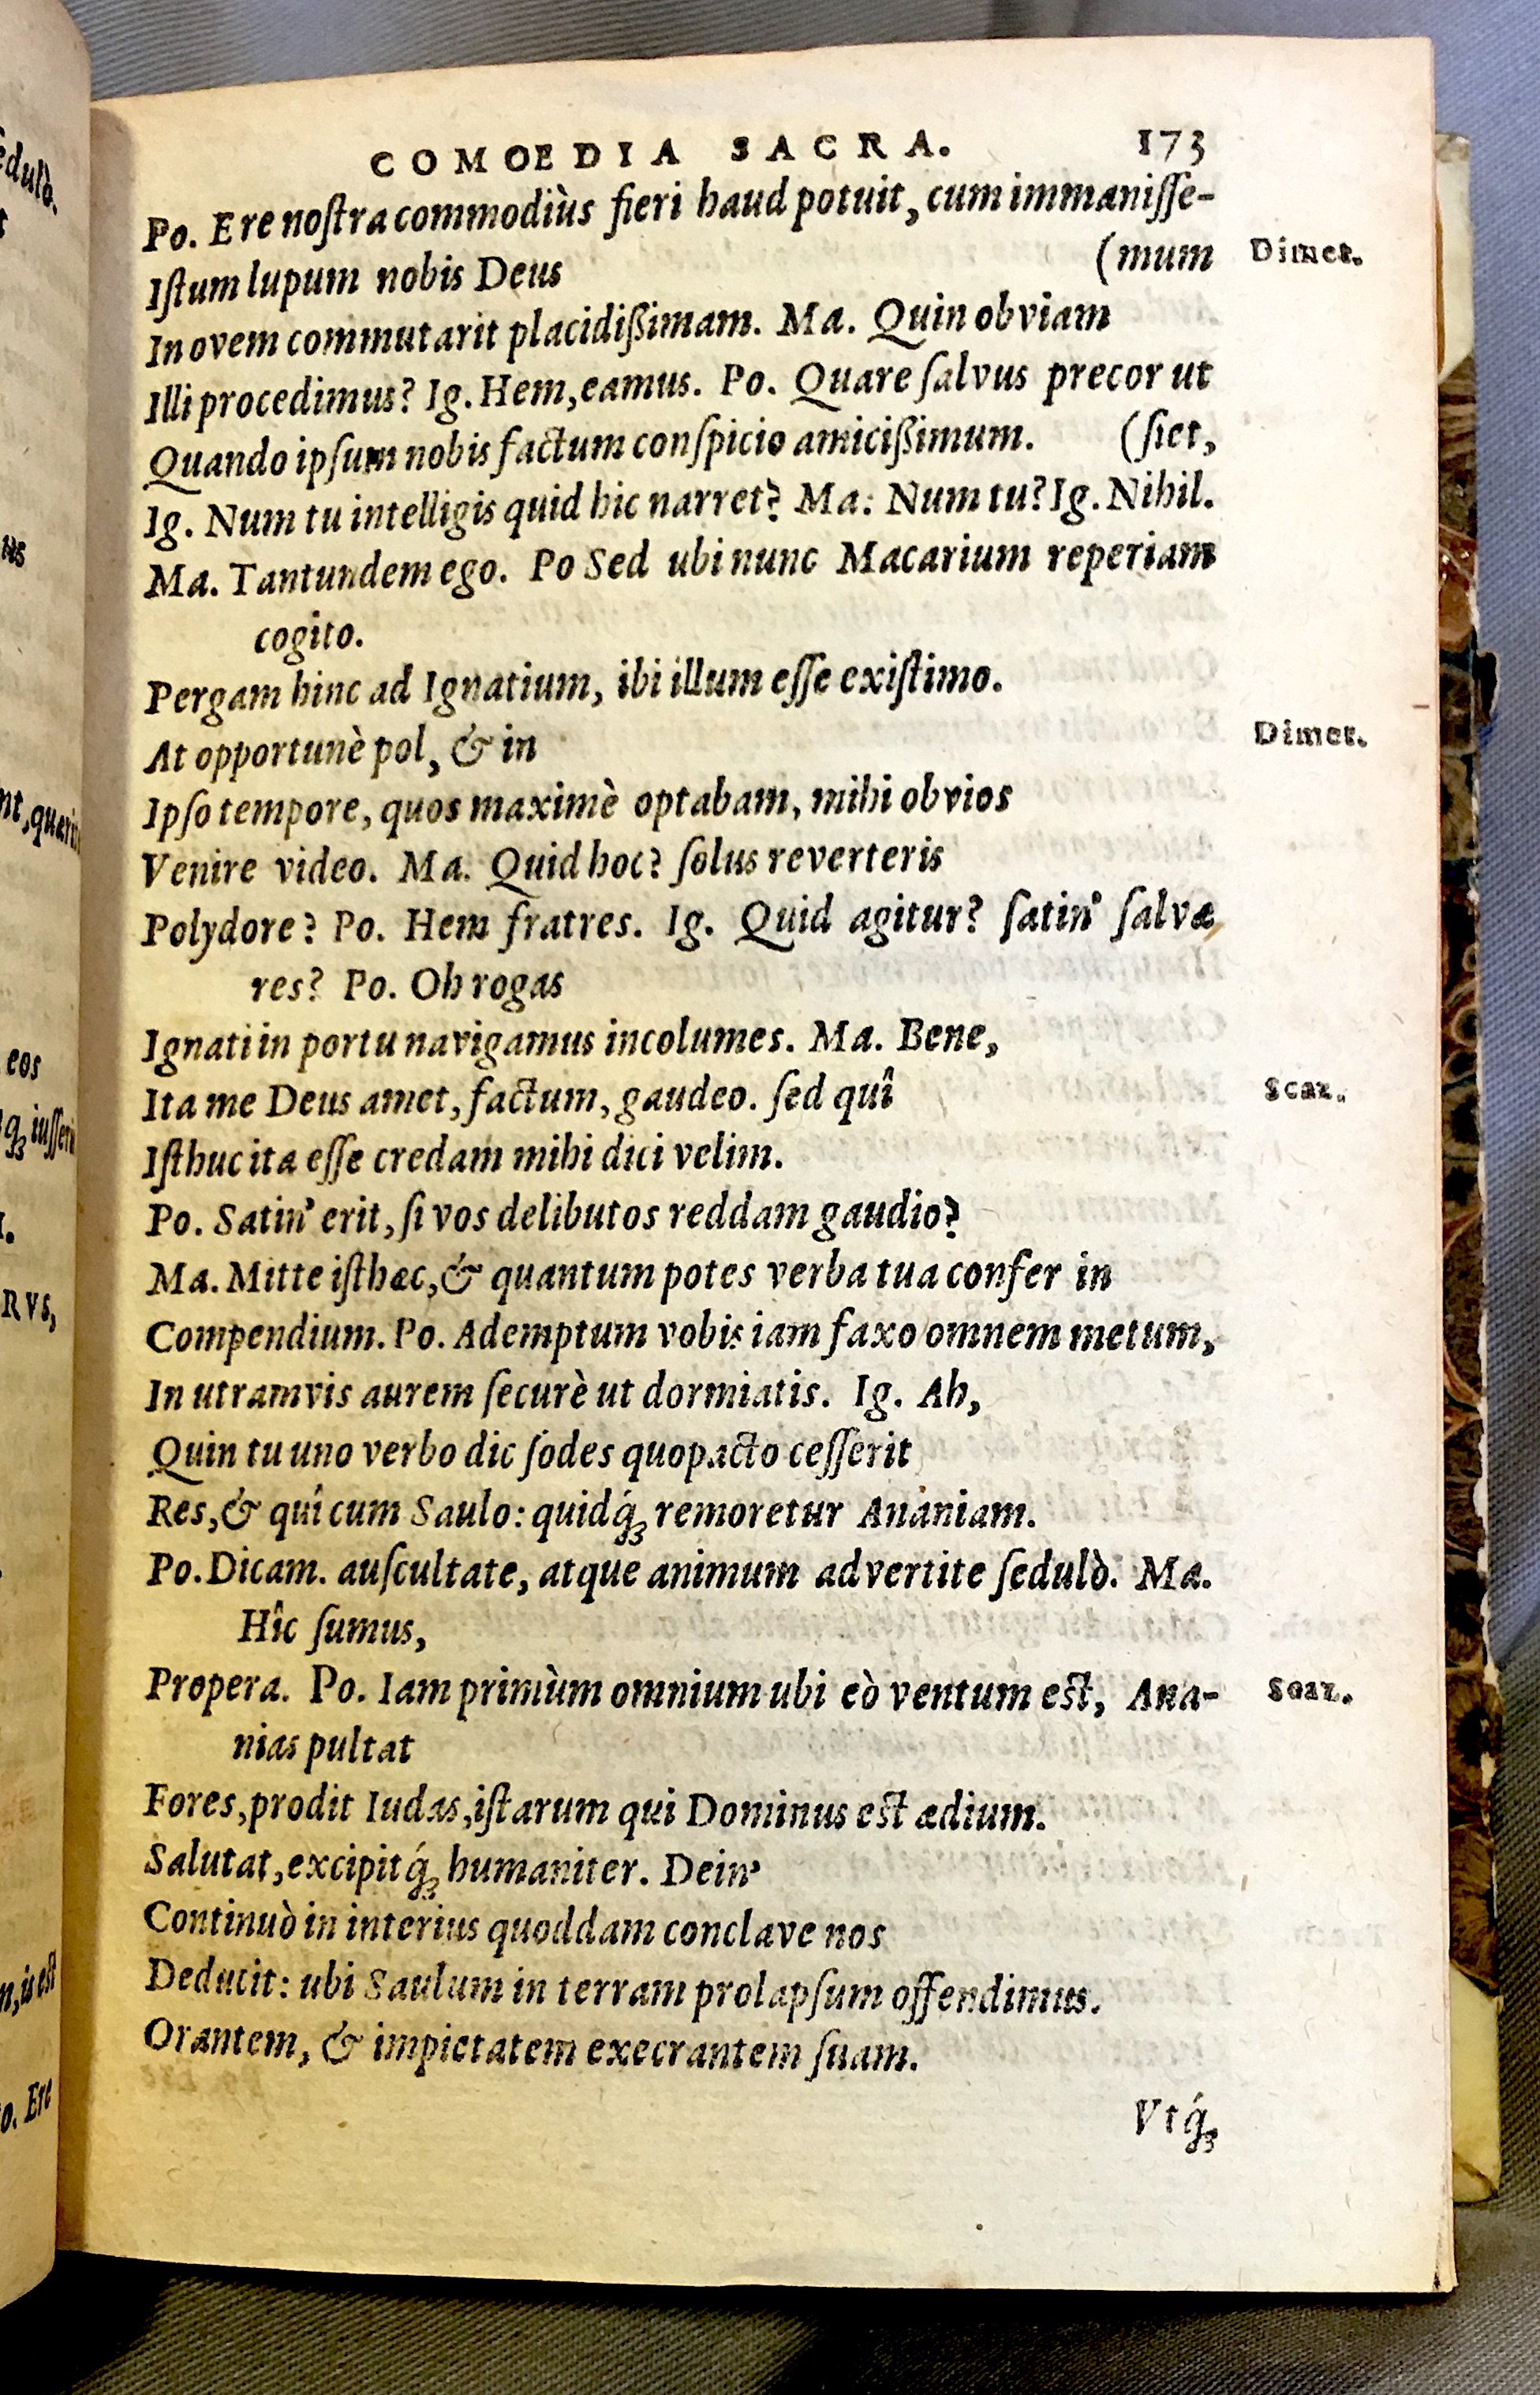 COMOEDIA SACRA. 173
Po. E re noſtra commodiùs fieri haud potuit, cum immaniſſe-
Iſtum lupum nobis Deus (mum Dimet.
In ovem commutarit placidißimam. Ma. Quin obviam
Illi procedimus? Ig. Hem, eamus. Po. Quare ſalvus precor ut
Quando ipſum nobis factum conſpicio amicißimum. (ſiet,
Ig. Num tu intelligis quid hic narret? Ma: Num tu? Ig. Nihil.
Ma. Tantundem ego. Po Sed ubi nunc Macarium reperiam
cogito.
Pergam hinc ad Ignatium, ibi illum eſſe exiſtimo.
At opportunè pol, & in Dimet.
Ipſo tempore, quos maximè optabam, mihi obvios
Venire video. Ma. Quid hoc? ſolus reverteris
Polydore? Po. Hem fratres. Ig. Quid agitur? ſatin' ſalvæ
res? Po. Oh rogas
Ignati in portu navigamus incolumes. Ma. Bene,
Ita me Deus amet, factum, gaudeo. ſed quî Scaz.
Iſthuc ita eſſe credam mihi dici velim.
Po. Satin' erit, ſi vos delibutos reddam gaudio?
Ma. Mitte iſthæc, & quantum potes verba tua confer in
Compendium. Po. Ademptum vobis iam faxo omnem metum,
In utramvis aurem ſecurè ut dormiatis. Ig. Ah,
Quin tu uno verbo dic ſodes quo pacto ceſſerit
Res, & quî cum Saulo: quidq́ꝫ remoretur Ananiam.
Po. Dicam. auſcultate, atque animum advertite ſedulò. Ma.
Hîc ſumus,
Propera. Po. Iam primùm omnium ubi eò ventum eſt, Ana- Scaz.
nias pultat
Fores, prodit Iudas, iſtarum qui Dominus eſt ædium.
Salutat, excipitq́ꝫ humaniter. Dein'
Continuò in interius quoddam conclave nos
Deducit: ubi Saulum in terram prolapſum offendimus.
Orantem, & impietatem execrantem ſuam.
Vtq́ꝫ